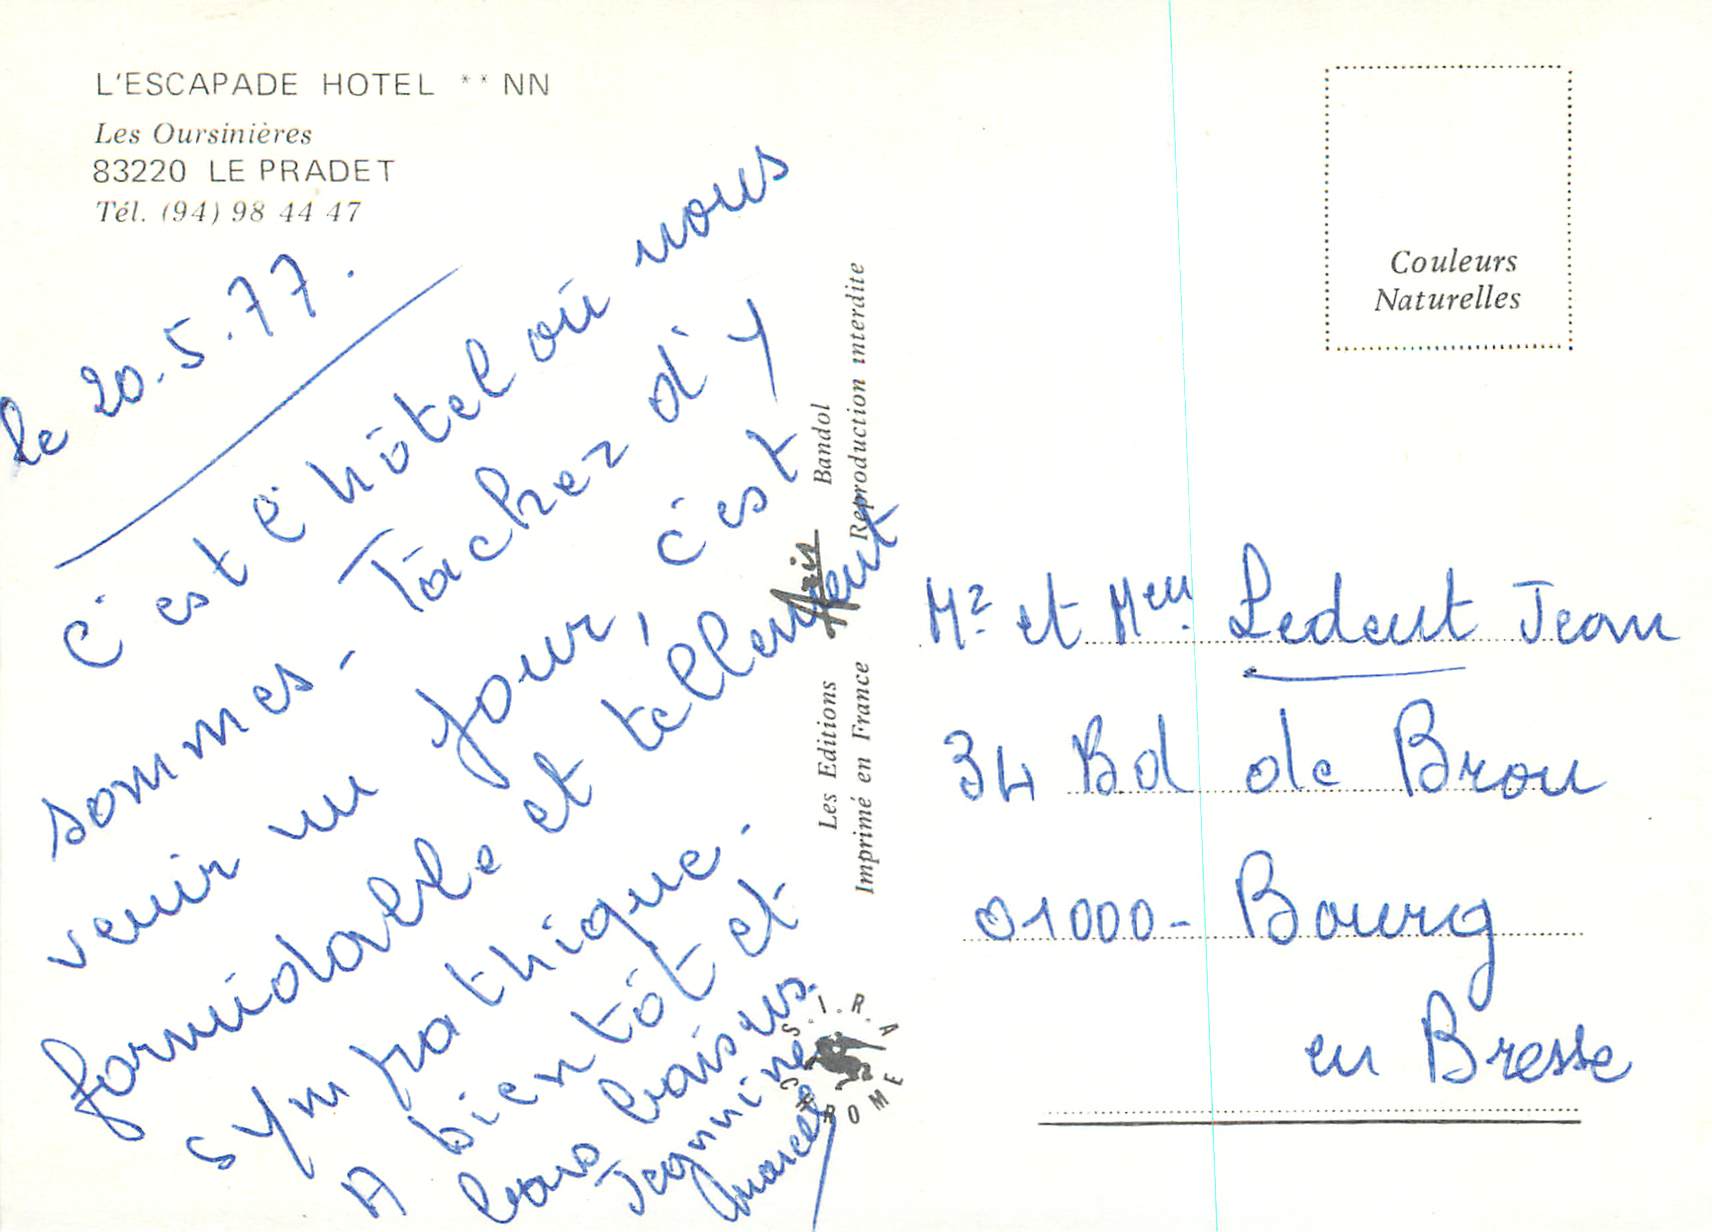 L'ESCAPADE HOTEL ** NN
Les Oursinières
83220 LE PRADET
Tél. (94) 98 44 47
le 20.5.77.
C'est l'hôtel où nous
sommes - Tâchez d'y
venir un jour, c'est
formidable et tellement
sympathique.
A bientôt et
bons baisers.
Jeannine
Marcel
Les Editions Aris Bandol
Imprimé en France Reproduction interdite
S.I.R.A
CHROME
Couleurs
Naturelles
Mr. et Meu. Ledeut Jean
34 Bd de Brou
01000 - Bourg
en Bresse